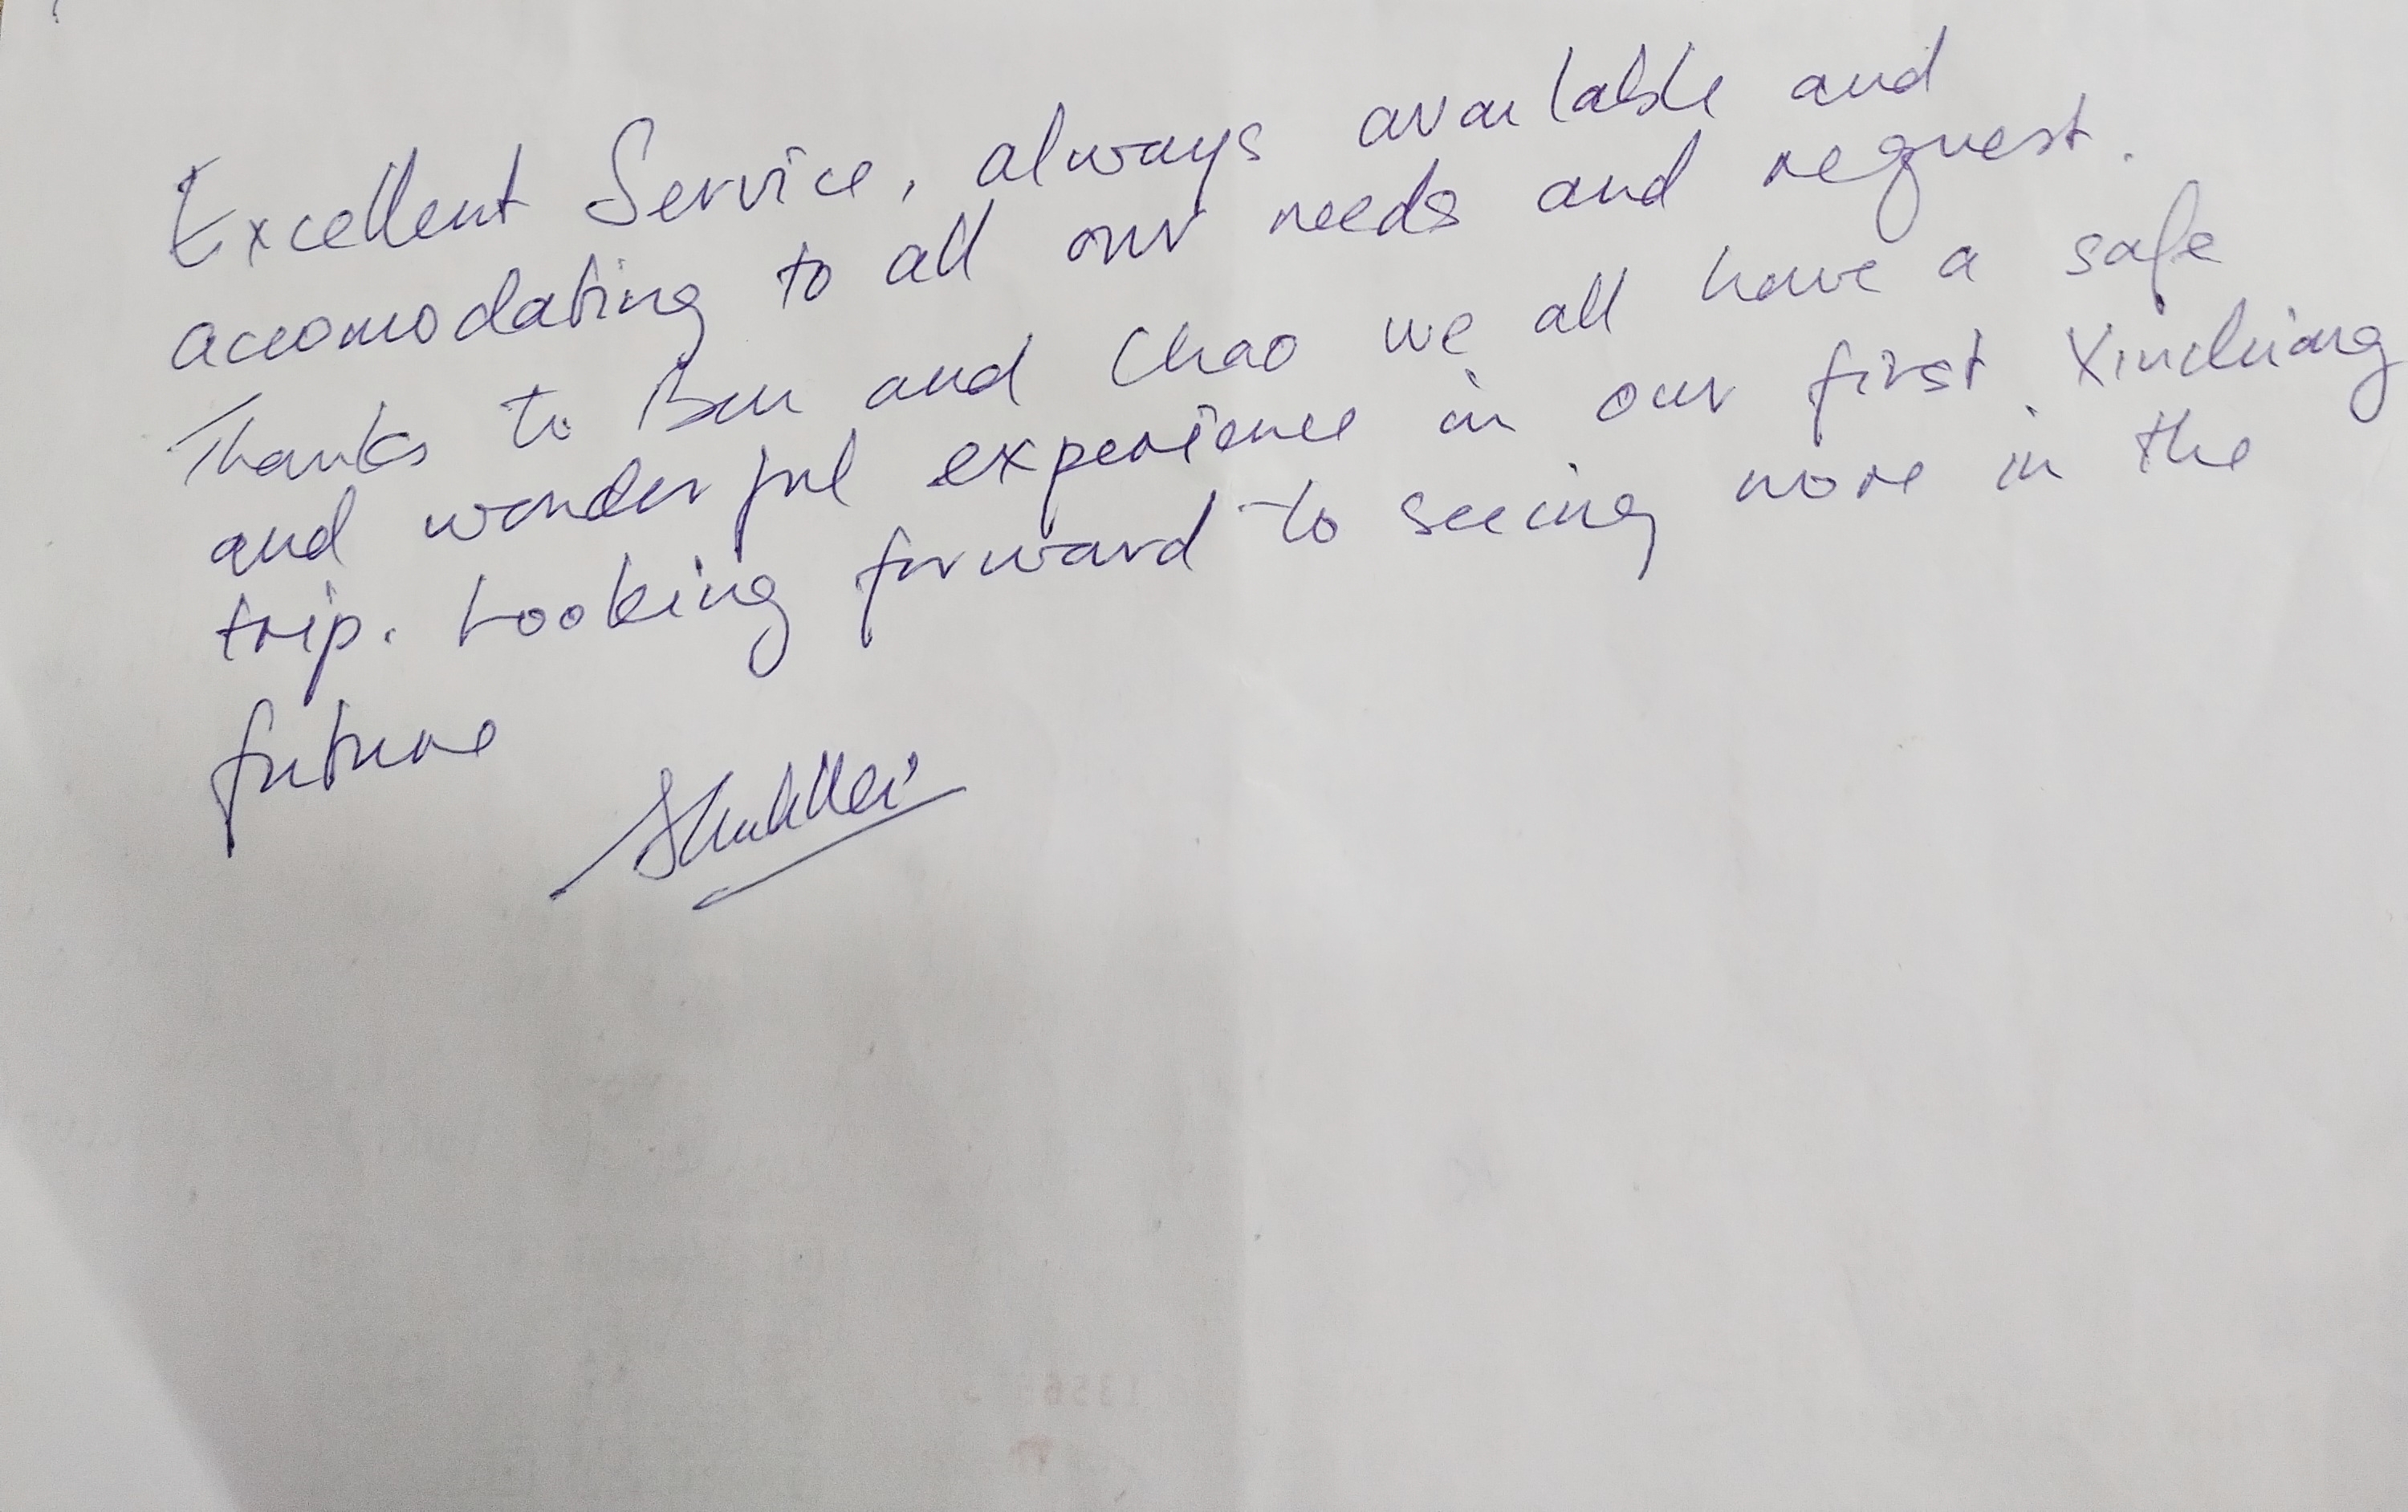 Excellent Service, always available and
accomodating to all our needs and request.
Thanks to Ben and Chao we all have a safe
and wonderful experience in our first Xinchiang
trip. Looking forward to seeing more in the
future